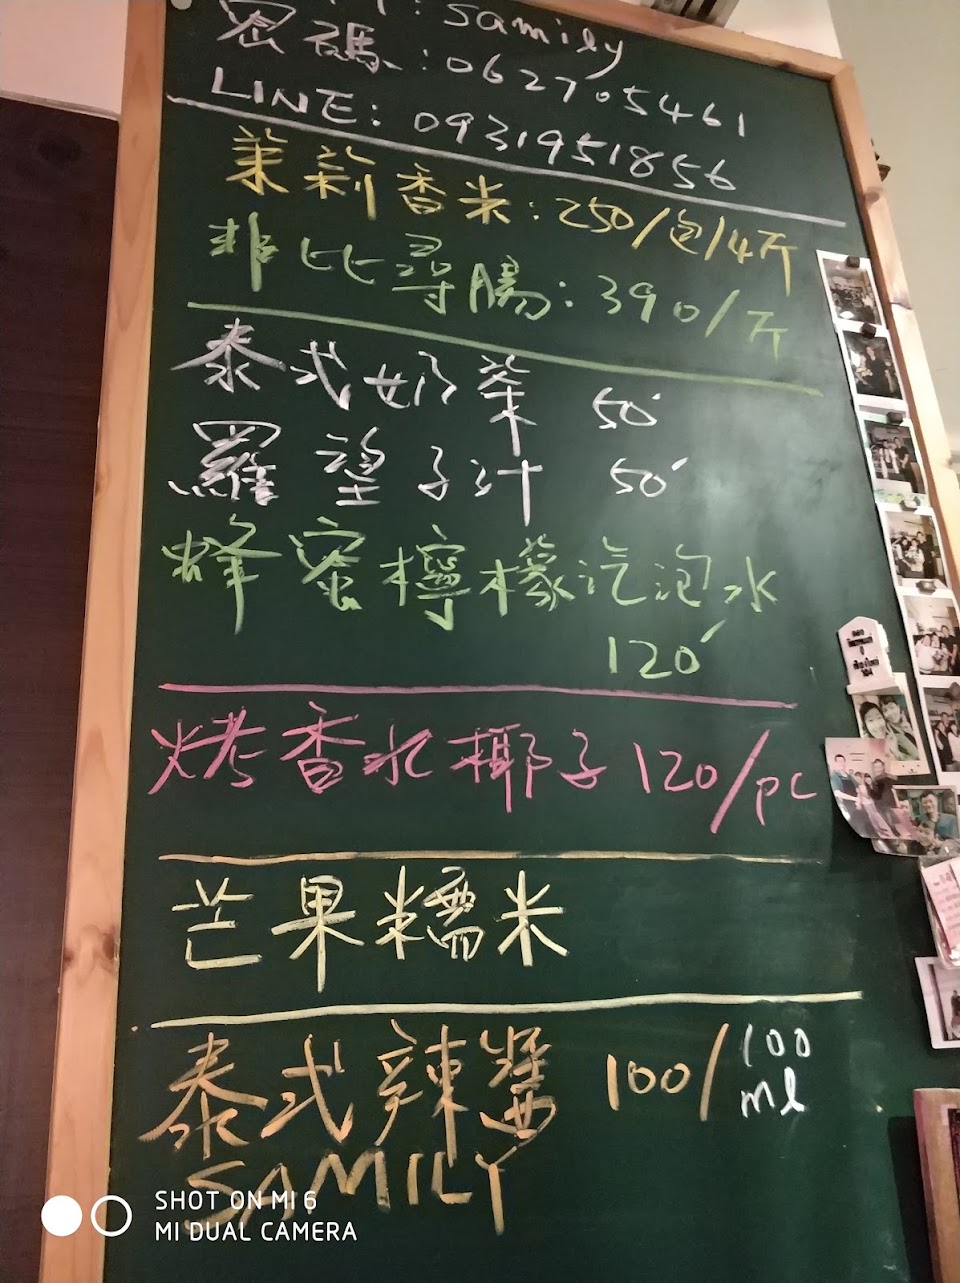 : samily
密碼: 062705461
LINE: 0931951856
茉莉香米: 250/包/4斤
非比尋腸: 390/斤
泰式奶茶 50
羅望子汁 50
蜂蜜檸檬汽泡水
120
烤香水椰子 120/pc
芒果糯米
泰式辣醬 100/100ml
SAMILY
SHOT ON MI 6
MI DUAL CAMERA